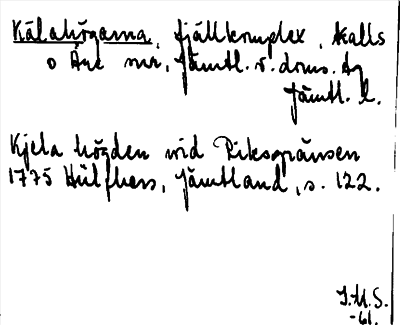 Kålahögarna, fjällkomplex, Kalls
o Åre snr, Jämtl. v. doms. Ag
Jämtl. l.
Kjela högden vid Riksgränsen
1775 Hülphers, Jämtland, s. 122.
I.M.S.
-61.